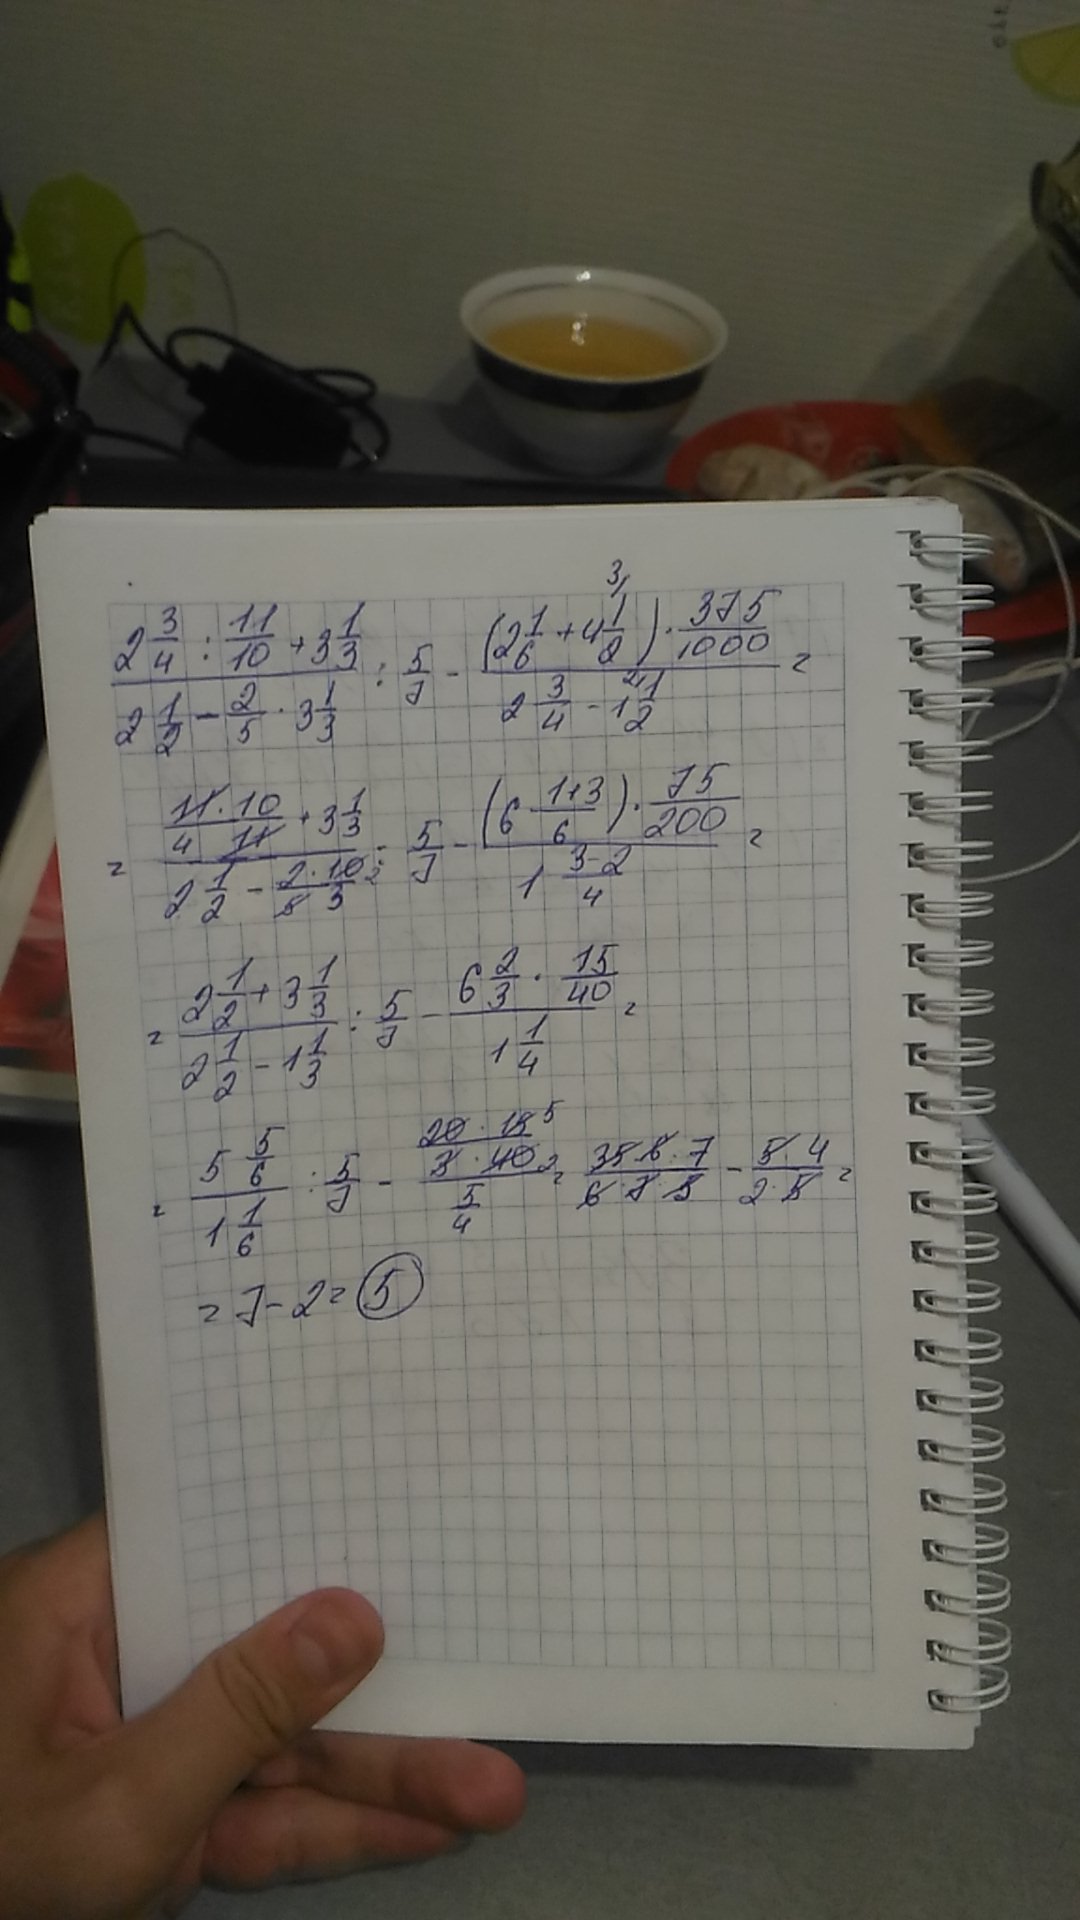 (2 3/4 : 11/10 + 3 1/3)/(2 1/2 - 2/5 · 3 1/3) : 5/7 - ((2 1/6 + 4 1/2) · 375/1000)/(2 3/4 - 1 1/2) =
= ((11 · 10)/(4 · 11) + 3 1/3)/(2 1/2 - (2 · 10)/(5 · 3)) : 5/7 - ((6 (1+3)/6) · 75/200)/(1 (3-2)/4) =
= (2 1/2 + 3 1/3)/(2 1/2 - 1 1/3) : 5/7 - (6 2/3 · 15/40)/(1 1/4) =
= (5 5/6)/(1 1/6) : 5/7 - ((20 · 15)/(3 · 40))/(5/4) = (35 · 6 · 7)/(6 · 7 · 5) - (5 · 4)/(2 · 5) =
= 7 - 2 = 5